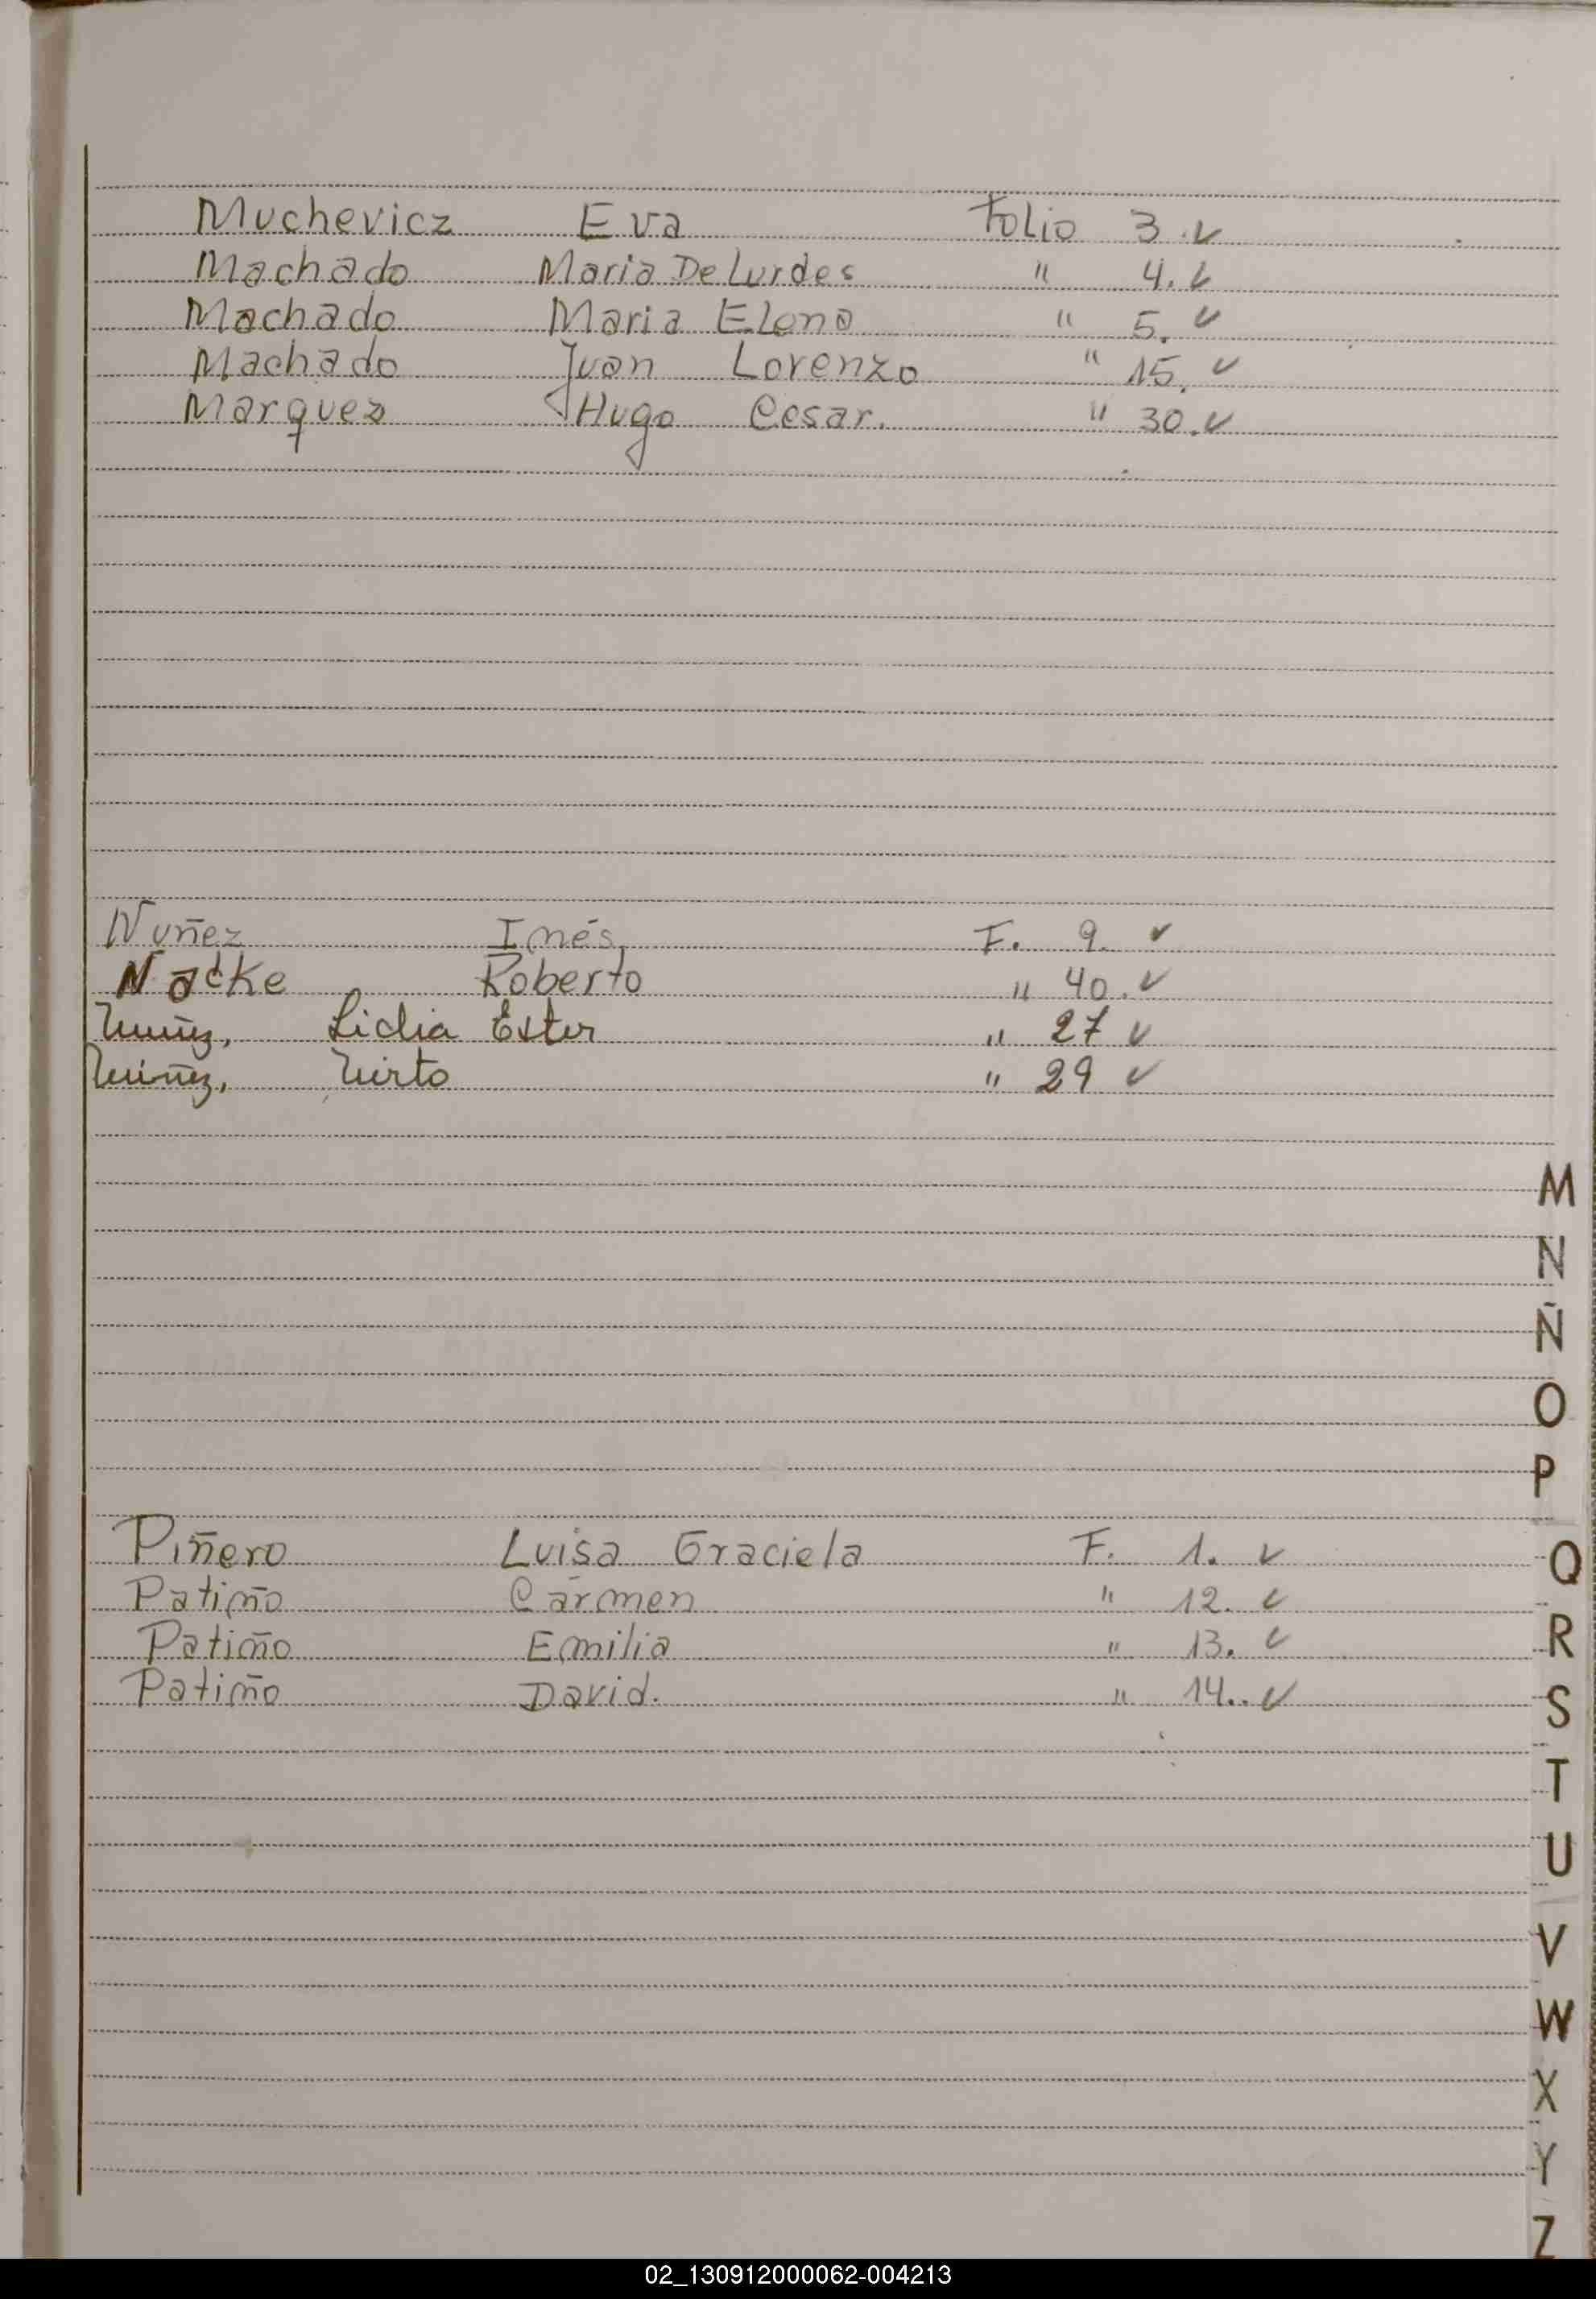 Muchevicz Eva Folio 3. ✓
Machado Maria De Lurdes " 4. ✓
Machado Maria Elena " 5. ✓
Machado Juan Lorenzo " 15. ✓
Marquez Hugo Cesar. " 30. ✓
Nuñez Inés, F. 9. ✓
Nacke Roberto " 40. ✓
Nuñez, Lidia Ester " 27 ✓
Núñez, " 29 ✓
M
N
Ñ
O
P
Piñero Luisa Graciela F. 1. ✓
Q
Patiño Carmen " 12. ✓
R
Patiño Emilia " 13. ✓
Patiño David. " 14.. ✓
S
T
U
V
W
X
Y
Z
02_130912000062-004213